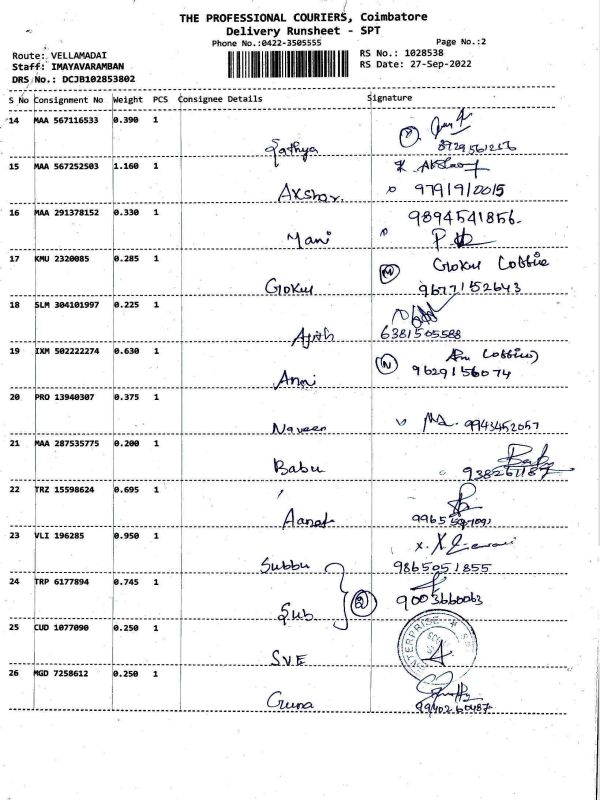 THE PROFESSIONAL COURIERS, Coimbatore
Delivery Runsheet - SPT
Phone No.:0422-3505555 Page No.:2
Route: VELLAMADAI RS No.: 1028538
Staff: IMAYAVARAMBAN RS Date: 27-Sep-2022
DRS No.: DCJB102853802
S No Consignment No Weight PCS Consignee Details Signature
14 MAA 567116533 0.390 1
Sathya
15 MAA 567252503 1.160 1
Akshay. 9791910015
16 MAA 291378152 0.330 1 9894541856
Mani
17 KMU 2320085 0.285 1 Gokul
Gokul 9677152643
18 SLM 304101997 0.225 1
Ajith 6381505588
19 IXM 502222274 0.630 1
9629156074
20 PRO 13940307 0.375 1
Naveen 9943452057
21 MAA 287535775 0.200 1 Babu
Babu
22 TRZ 15598624 0.695 1
23 VLI 196285 0.950 1
Subbu 9865051855
24 TRP 6177894 0.745 1 9003660063
Sub
25 CUD 1077090 0.250 1 ENTERPRISE
SVE
26 MGD 7258612 0.250 1
Guna 9940260487